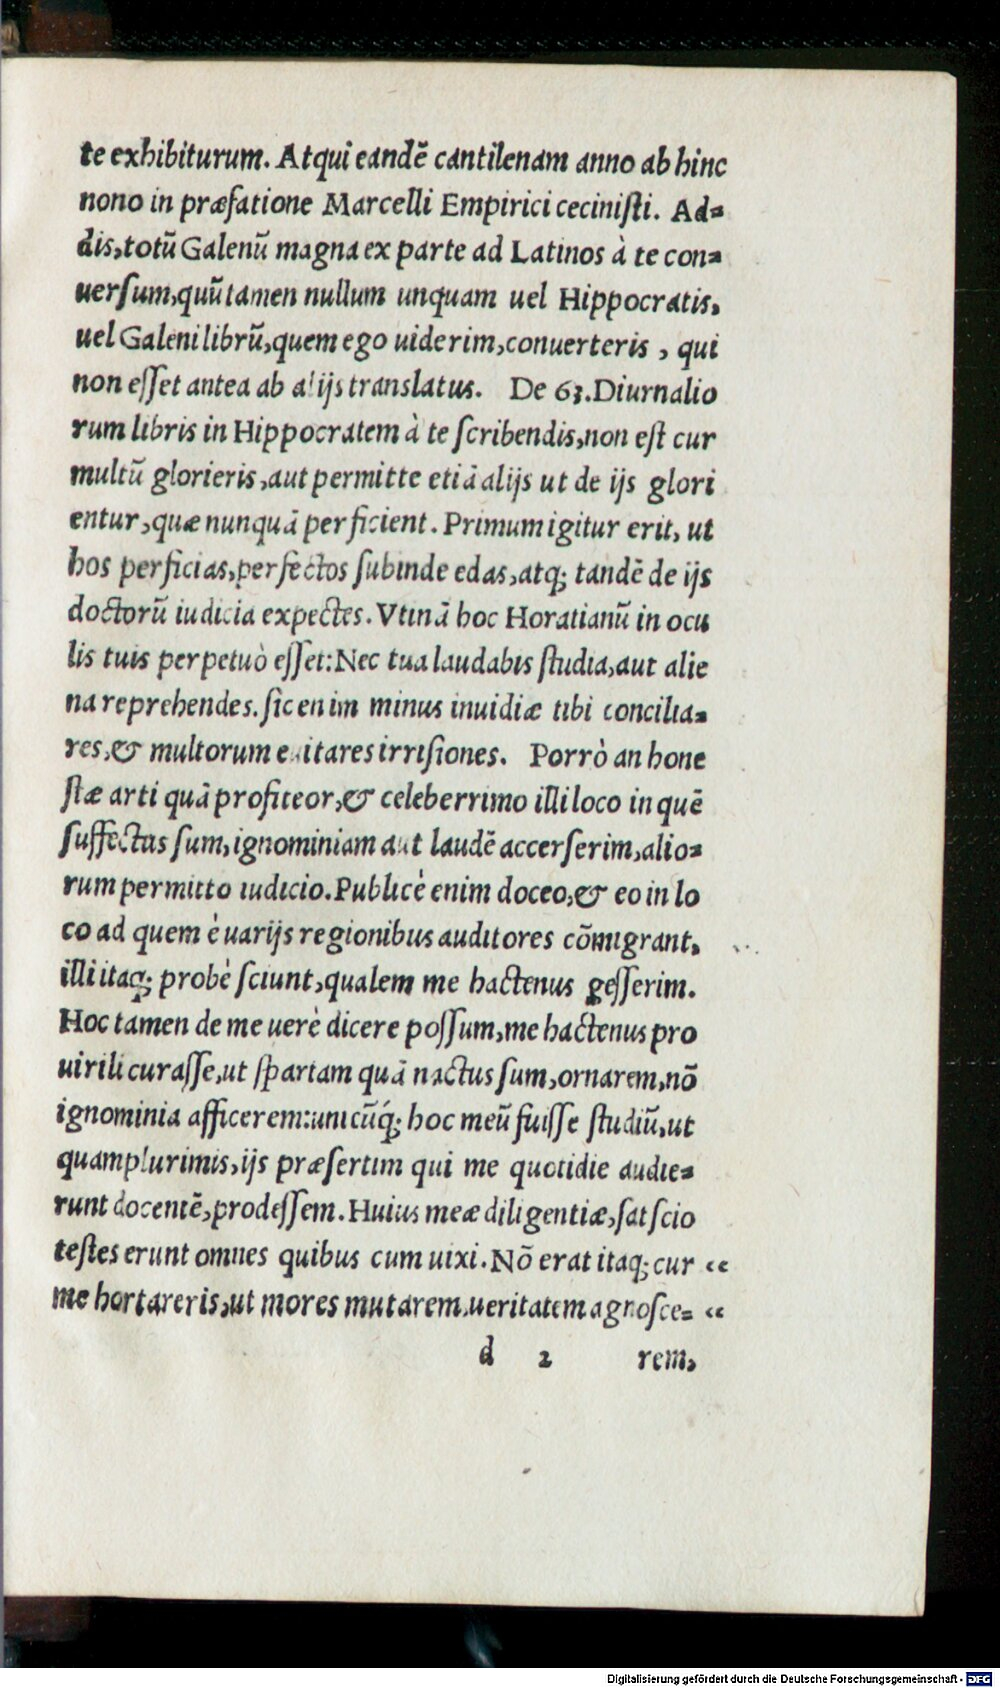 te exhibiturum. Atqui eandē cantilenam anno ab hinc
nono in præfatione Marcelli Empirici ceciniſti. Ad⸗
dis, totū Galenū magna ex parte ad Latinos à te con⸗
uerſum, quū tamen nullum unquam uel Hippocratis,
uel Galeni librū, quem ego uiderim, conuerteris , qui
non eſſet antea ab alijs translatus. De 63. Diurnalio
rum libris in Hippocratem à te ſcribendis, non eſt cur
multū glorieris, aut permitte etiā alijs ut de ijs glori
entur, quæ nunquā perficient. Primum igitur erit, ut
hos perficias, perfectos ſubinde edas, atq; tandē de ijs
doctorū iudicia expectes. Vtinā hoc Horatianū in ocu
lis tuis perpetuò eſſet: Nec tua laudabis ſtudia, aut alie
na reprehendes. ſic enim minus inuidiæ tibi concilia⸗
res, & multorum euitares irriſiones. Porrò an hone
ſtæ arti quā profiteor, & celeberrimo illi loco in quē
ſuffectus ſum, ignominiam aut laudē accerſerim, alio⸗
rum permitto iudicio. Publicè enim doceo, & eo in lo
co ad quem è uarijs regionibus auditores cōmigrant,
illi itaq; probè ſciunt, qualem me hactenus geſſerim.
Hoc tamen de me uerè dicere poſſum, me hactenus pro
uirili curaſſe, ut ſpartam quā nactus ſum, ornarem, nō
ignominia afficerem: unicūq́; hoc meū fuiſſe ſtudiū, ut
quamplurimis, ijs præſertim qui me quotidie audie⸗
runt docentē, prodeſſem. Huius meæ diligentiæ, ſat ſcio
teſtes erunt omnes quibus cum uixi. Nō erat itaq; cur “
me hortareris, ut mores mutarem, ueritatem agnoſce⸗ “
d 2 rem,
Digitalisierung gefördert durch die Deutsche Forschungsgemeinschaft - DFG